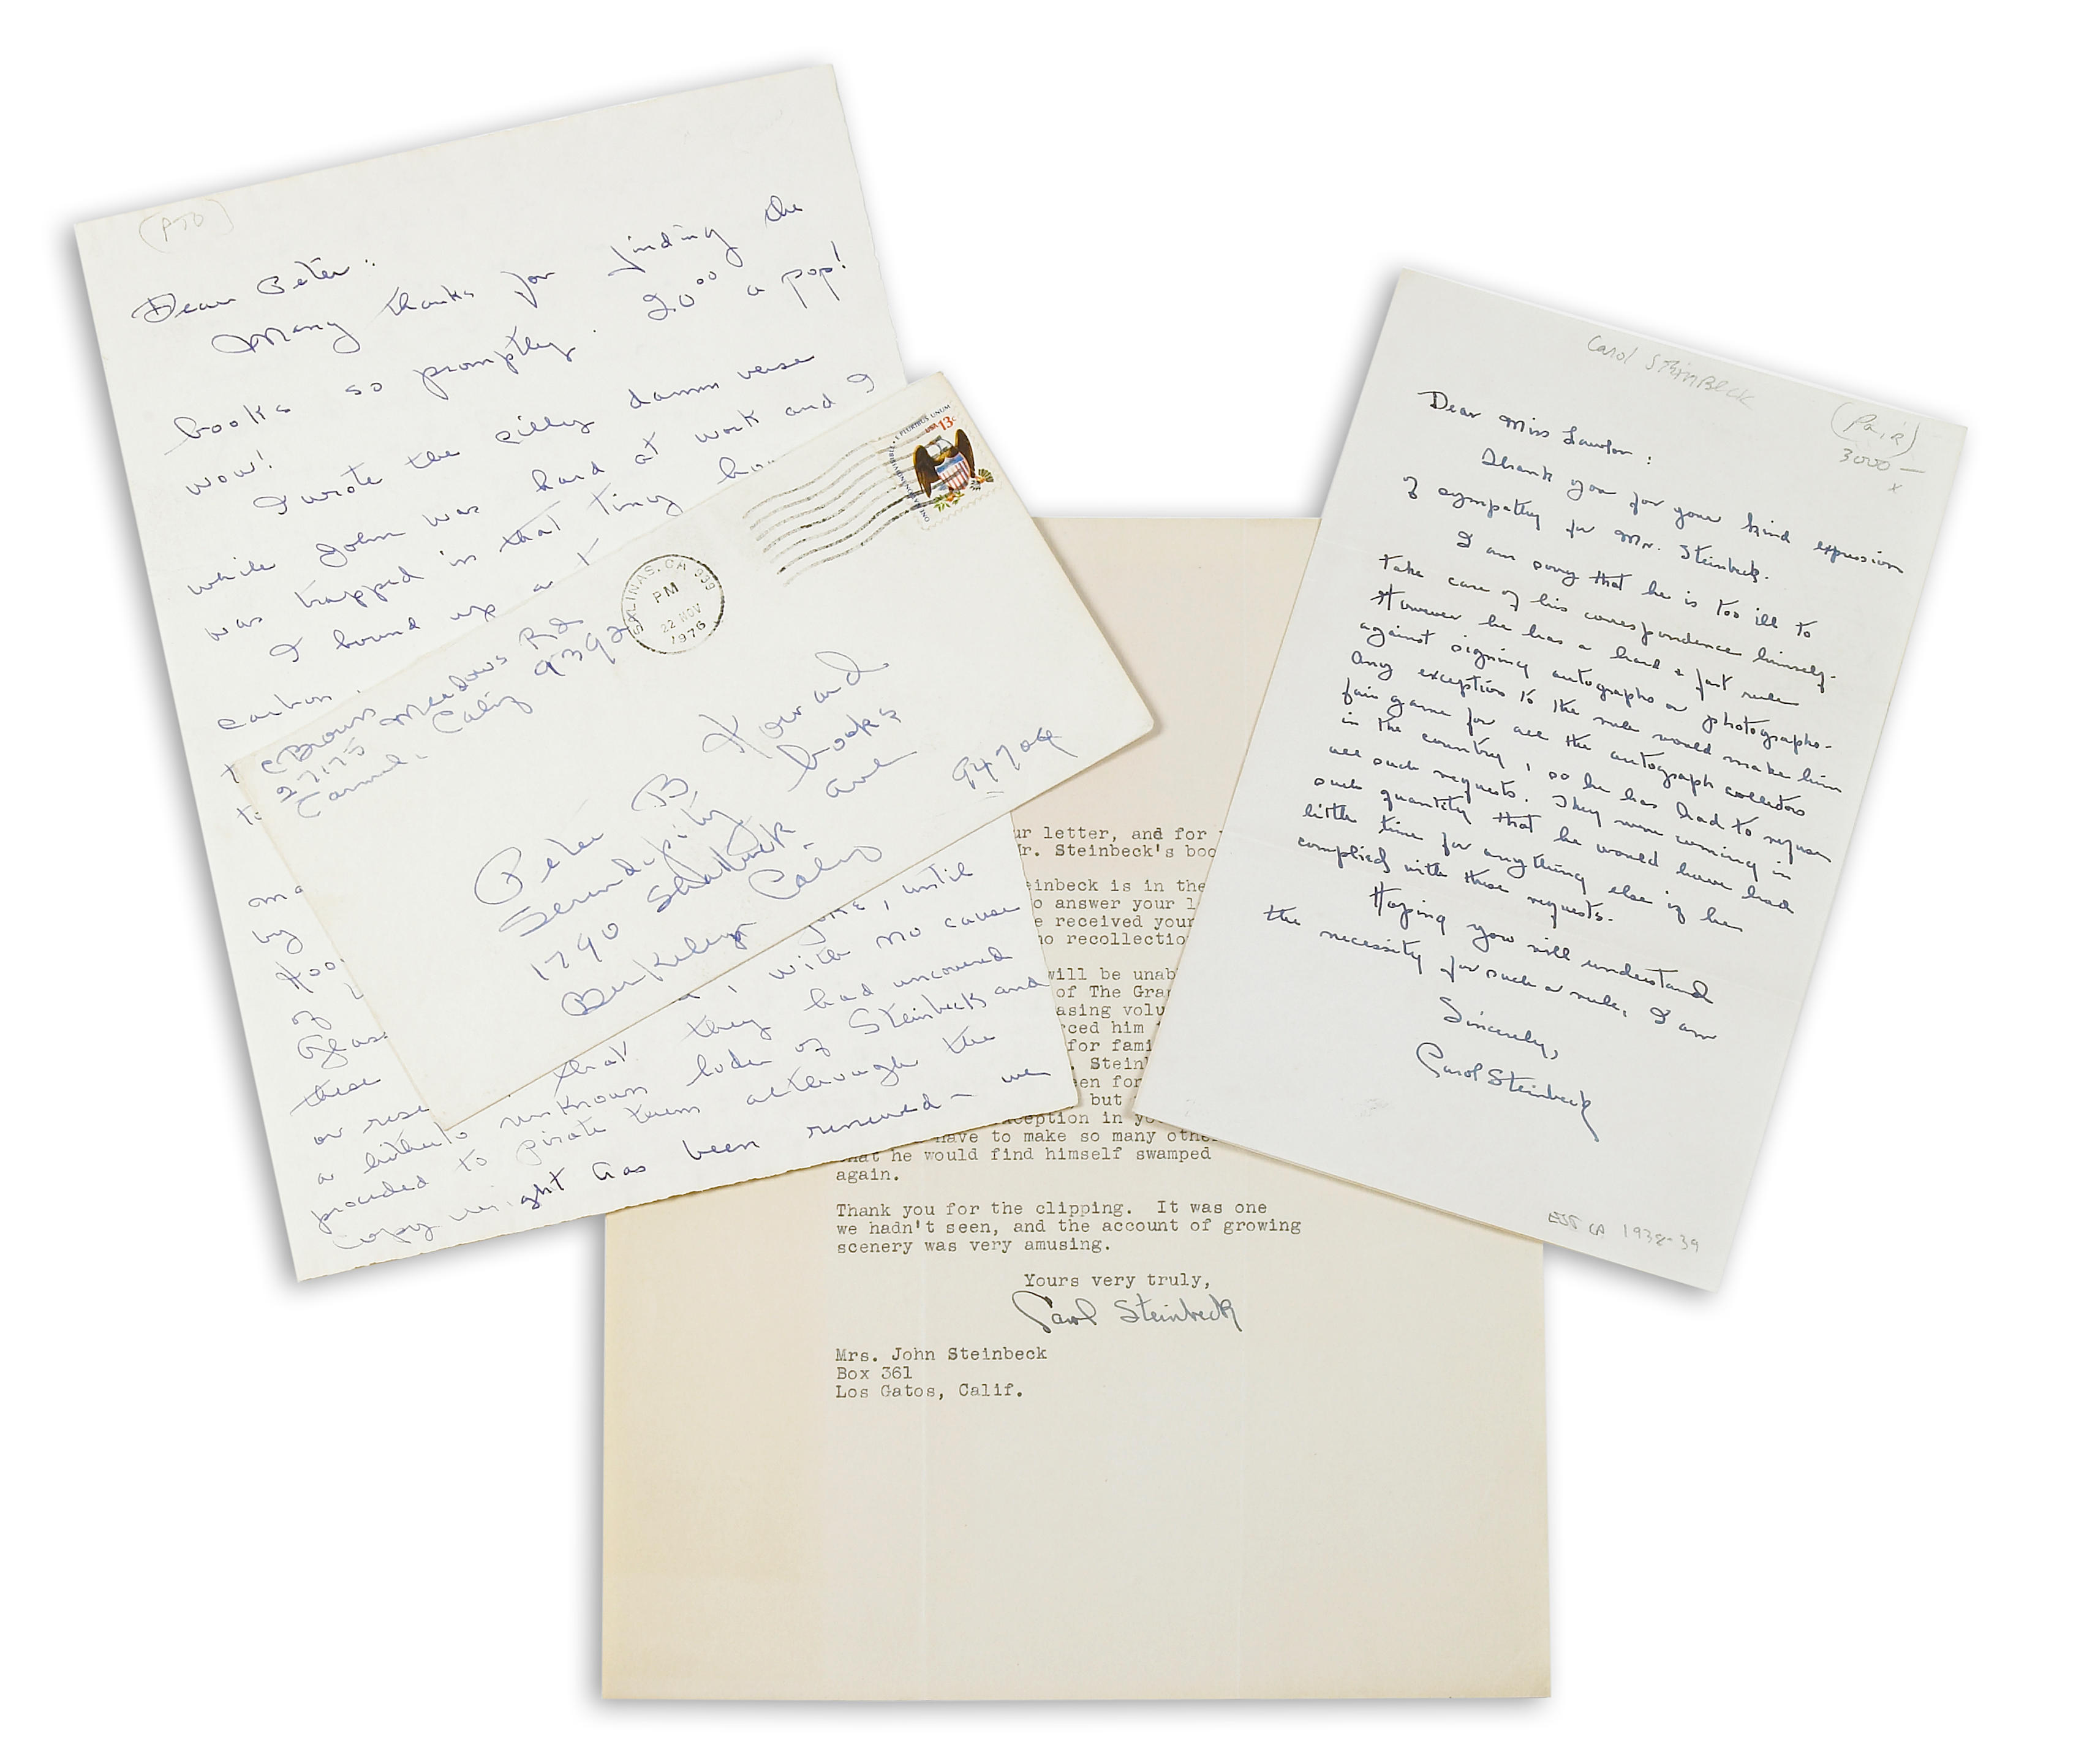 (PTO)
Dear Peter:
Many thanks for finding the
books so promptly. 20⁰⁰ a pop!
wow!
I wrote the silly damn verse
while John was hard at work and I
was trapped in that tiny
I bound up a
carbon
by
of
these
or rese
, until
, with no cause
that they had uncovered
a hitherto unknown lode of Steinbeck and
proceeded to pirate them although the
copywright has been renewed — we
C Brown
27175 Meadows Rd
Carmel, Calif 9392
SALINAS, CA 939
PM
22 NOV
1976
E PLURIBUS UNUM
USA 13c
ONE NATION INDIVISIBLE
Peter B. Howard
Serendipity books
1790 Shattuck ave
Berkeley Calif
94709
ur letter, and for
Mr. Steinbeck's boo
einbeck is in the
o answer your l
e received your
no recollectio
will be unab
of The Gra
asing volu
rced him
for fami
. Stein
en for
but
ception in yo
have to make so many othe
that he would find himself swamped
again.
Thank you for the clipping. It was one
we hadn't seen, and the account of growing
scenery was very amusing.
Yours very truly,
Carol Steinbeck
Mrs. John Steinbeck
Box 361
Los Gatos, Calif.
Carol Steinbeck
(Pair)
3000 —
x
Dear Miss Lawlor:
Thank you for your kind expression
of sympathy for Mr. Steinbeck.
I am sorry that he is too ill to
take care of his correspondence himself.
However he has a hard & fast rule
against signing autographs or photographs.
Any exception to the rule would make him
fair game for all the autograph collectors
in the country, so he has had to refuse
all such requests. They were coming in
such quantity that he would have had
little time for anything else if he
complied with these requests.
Hoping you will understand
the necessity for such a rule, I am
Sincerely,
Carol Steinbeck
1938-39